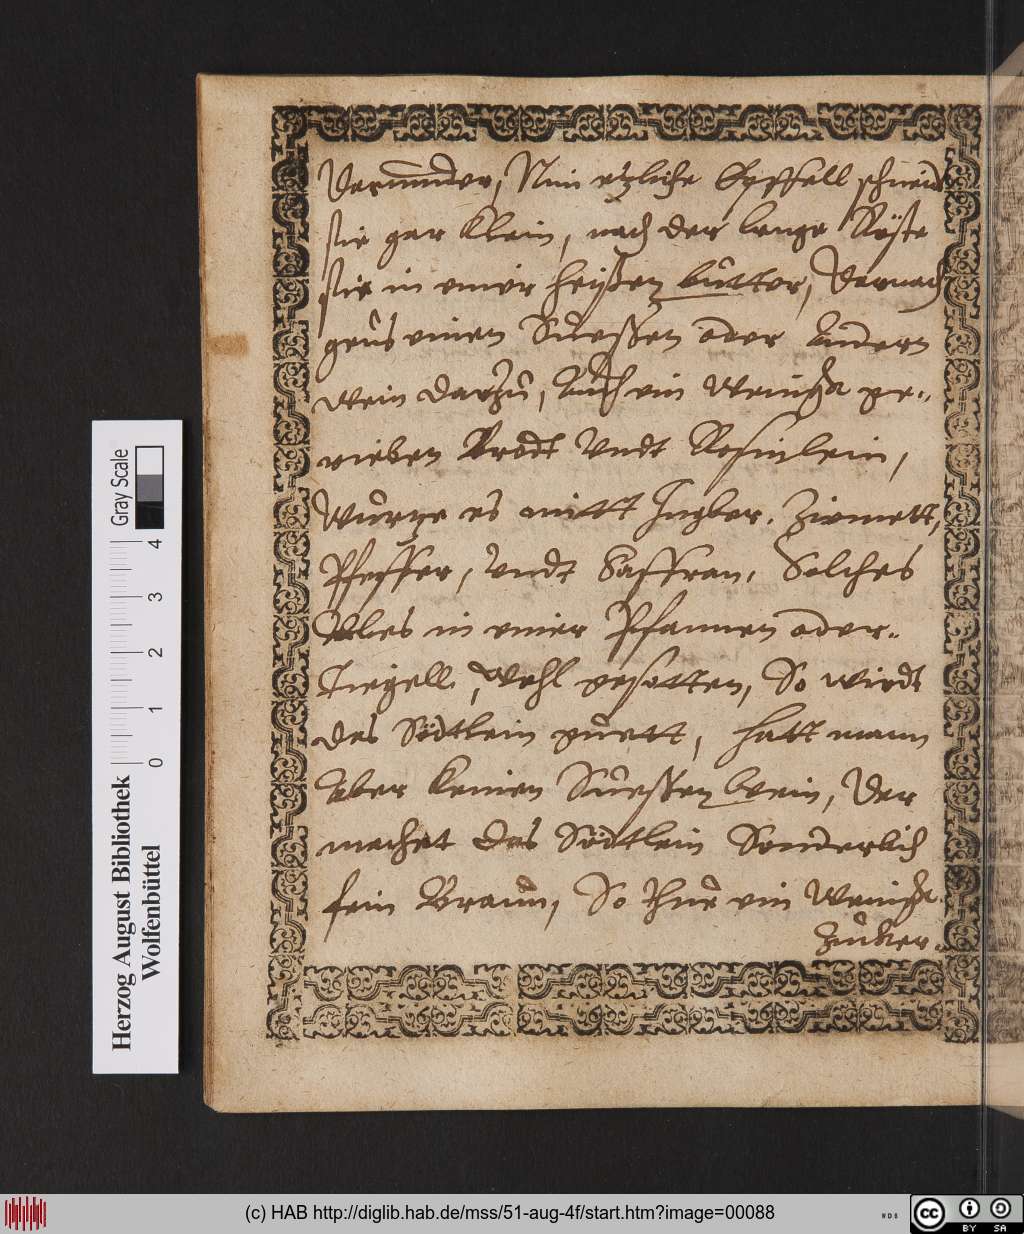 Darunnder, Nim etzliche Epffell schneid
sie gar klein, nach der lenge Röste
sie in einer heißen butter, Darnach
geus einen Süeßen oder andern
wein darzu, auch ein wenigk ge-
rieben brodt Undt Rosinlein,
Würze es mitt Ingber. Zimett,
Pfeffer, Undt Saffran, Solches
Alles in einer Pfannen oder
Tiegell, Wohl gesotten, So wirdt
das Södtlein guett, hatt mann
Aber keinen Süeßen Wein, Der
machet das Södtlein Sonderlich
fein Braun, So thue ein Wenigk
Zuker.
Herzog August Bibliothek
Wolfenbüttel
0 1 2 3 4
Gray Scale
(c) HAB http://diglib.hab.de/mss/51-aug-4f/start.htm?image=00088
WDB
cc BY SA